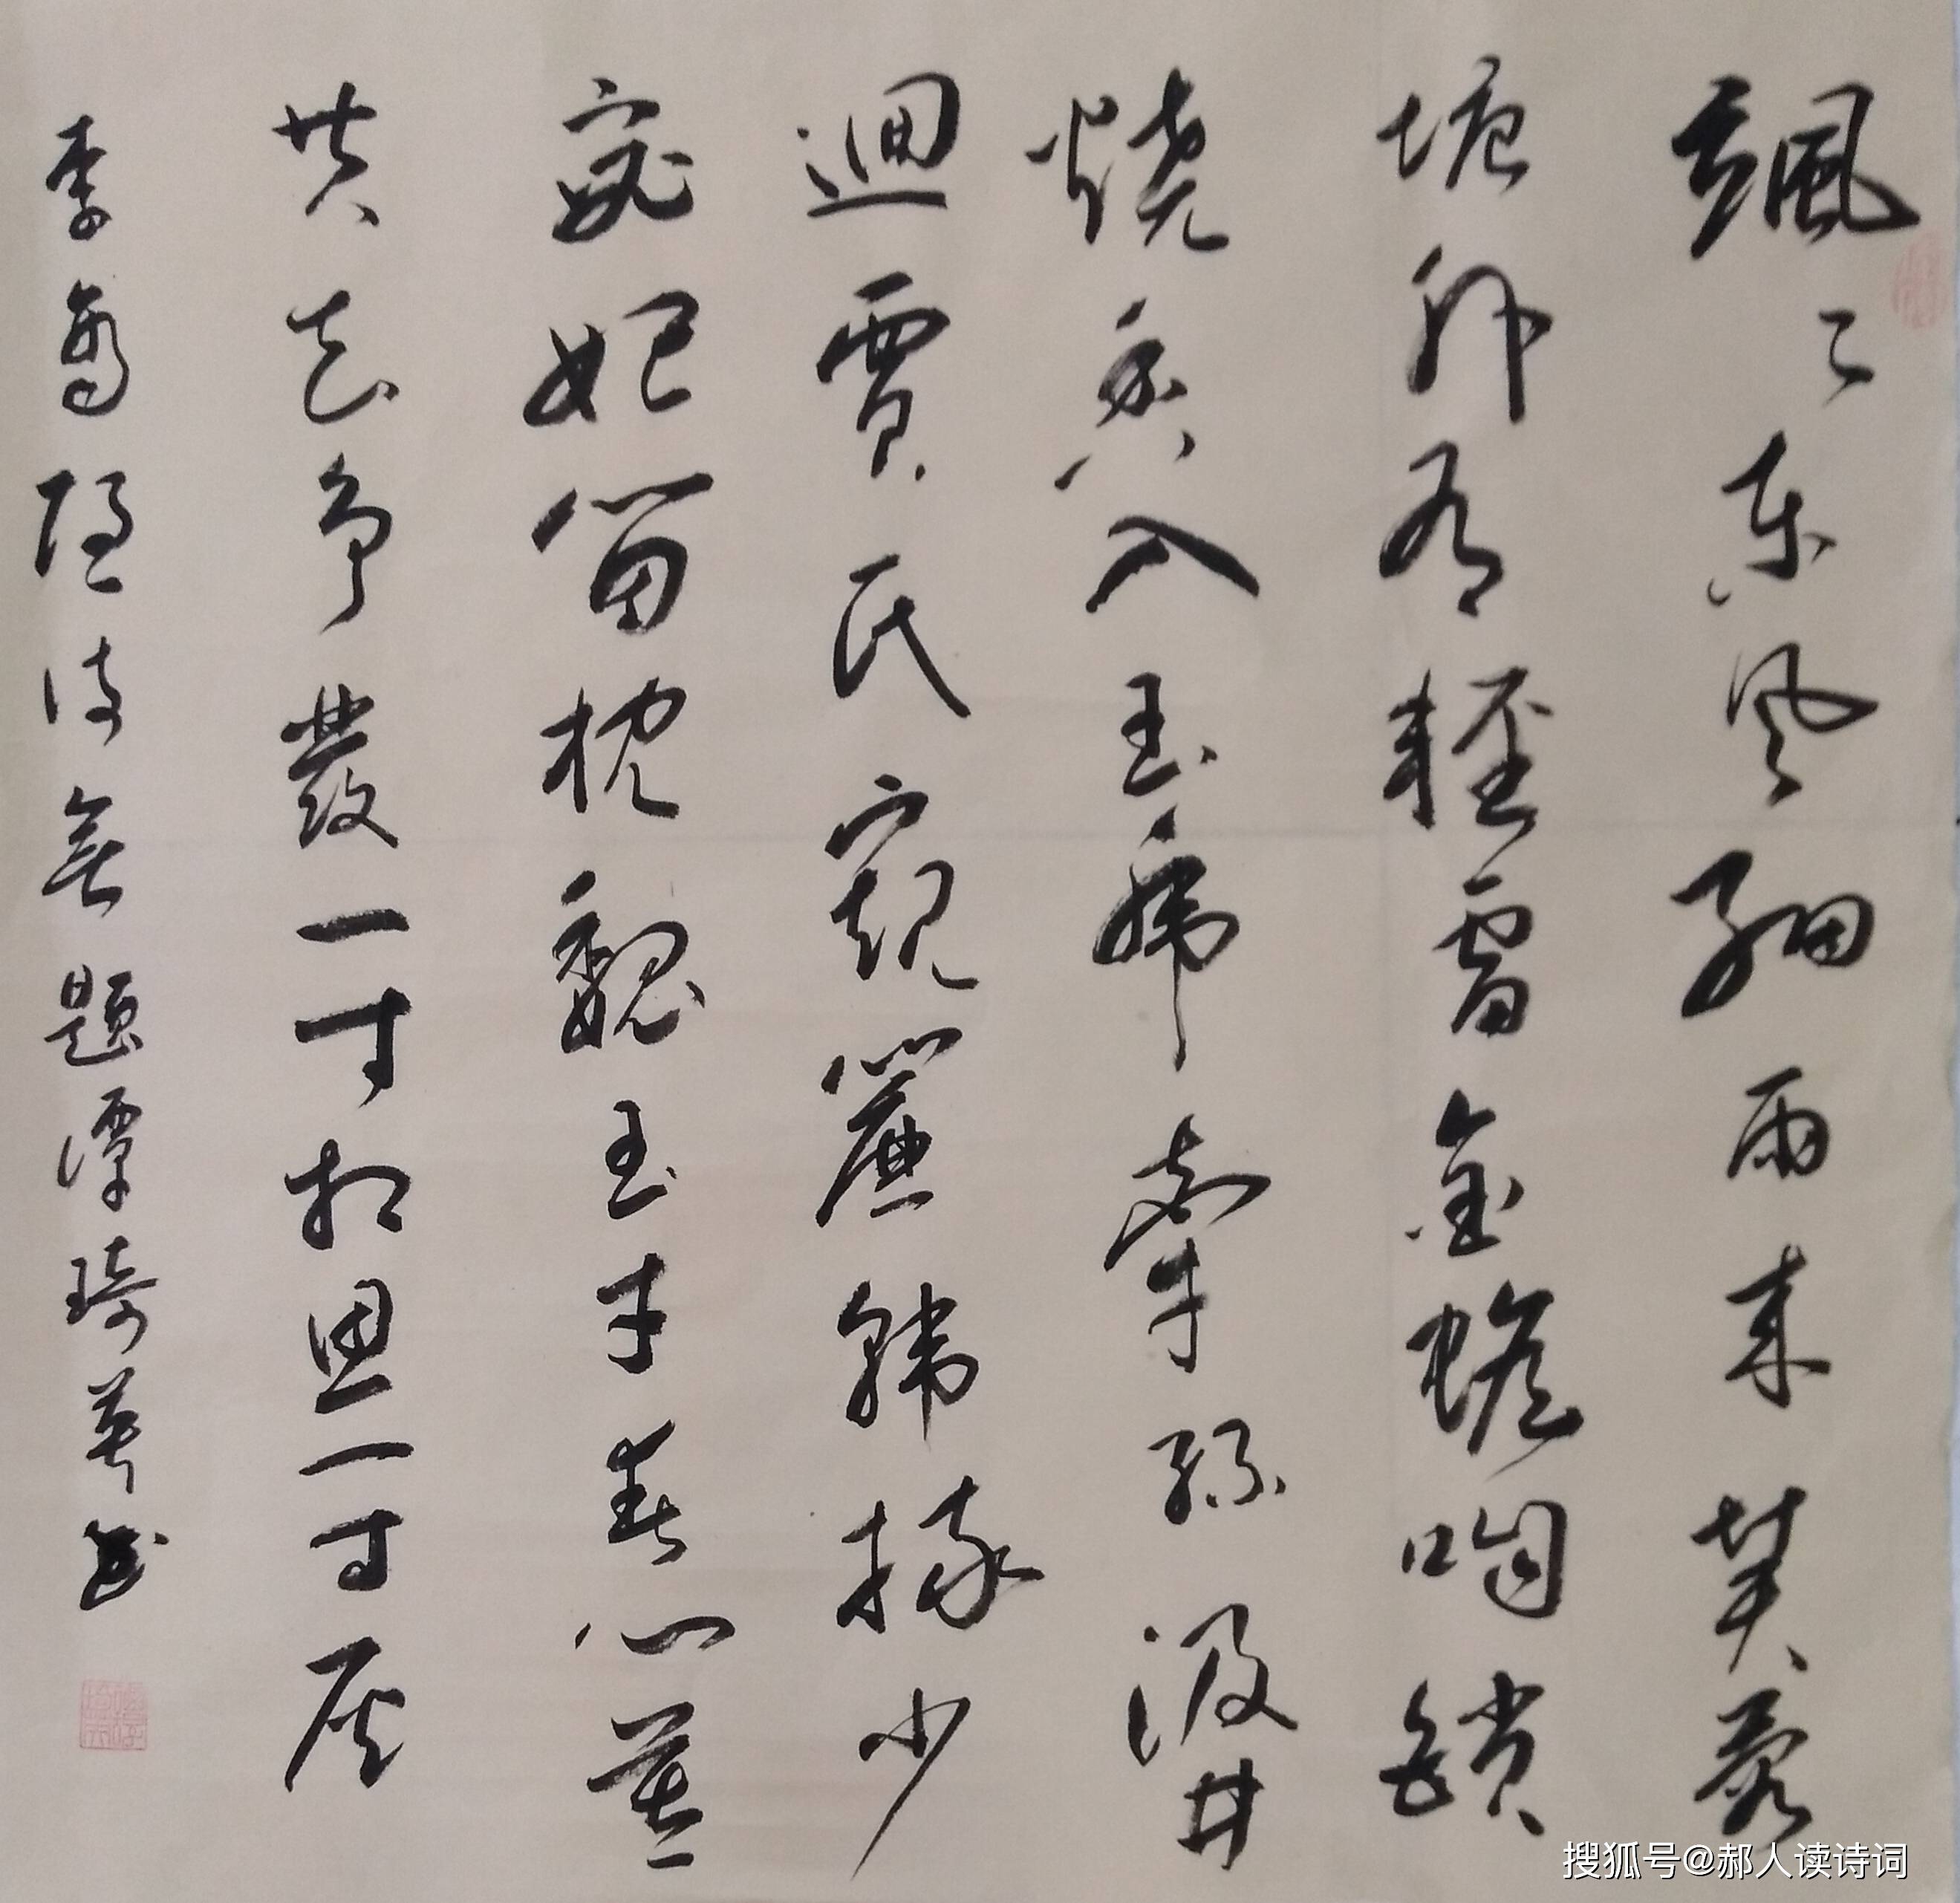 颯〻東风細雨来芙蓉
塘外有輕雷金蟾啮鎖
燒香入玉虎牽絲汲井
迴賈氏窺簾韓掾少
宓妃留枕魏玉才春心莫
共花争發一寸相思一寸灰
李商隱詩無題譚琦書
搜狐号@郝人读诗词